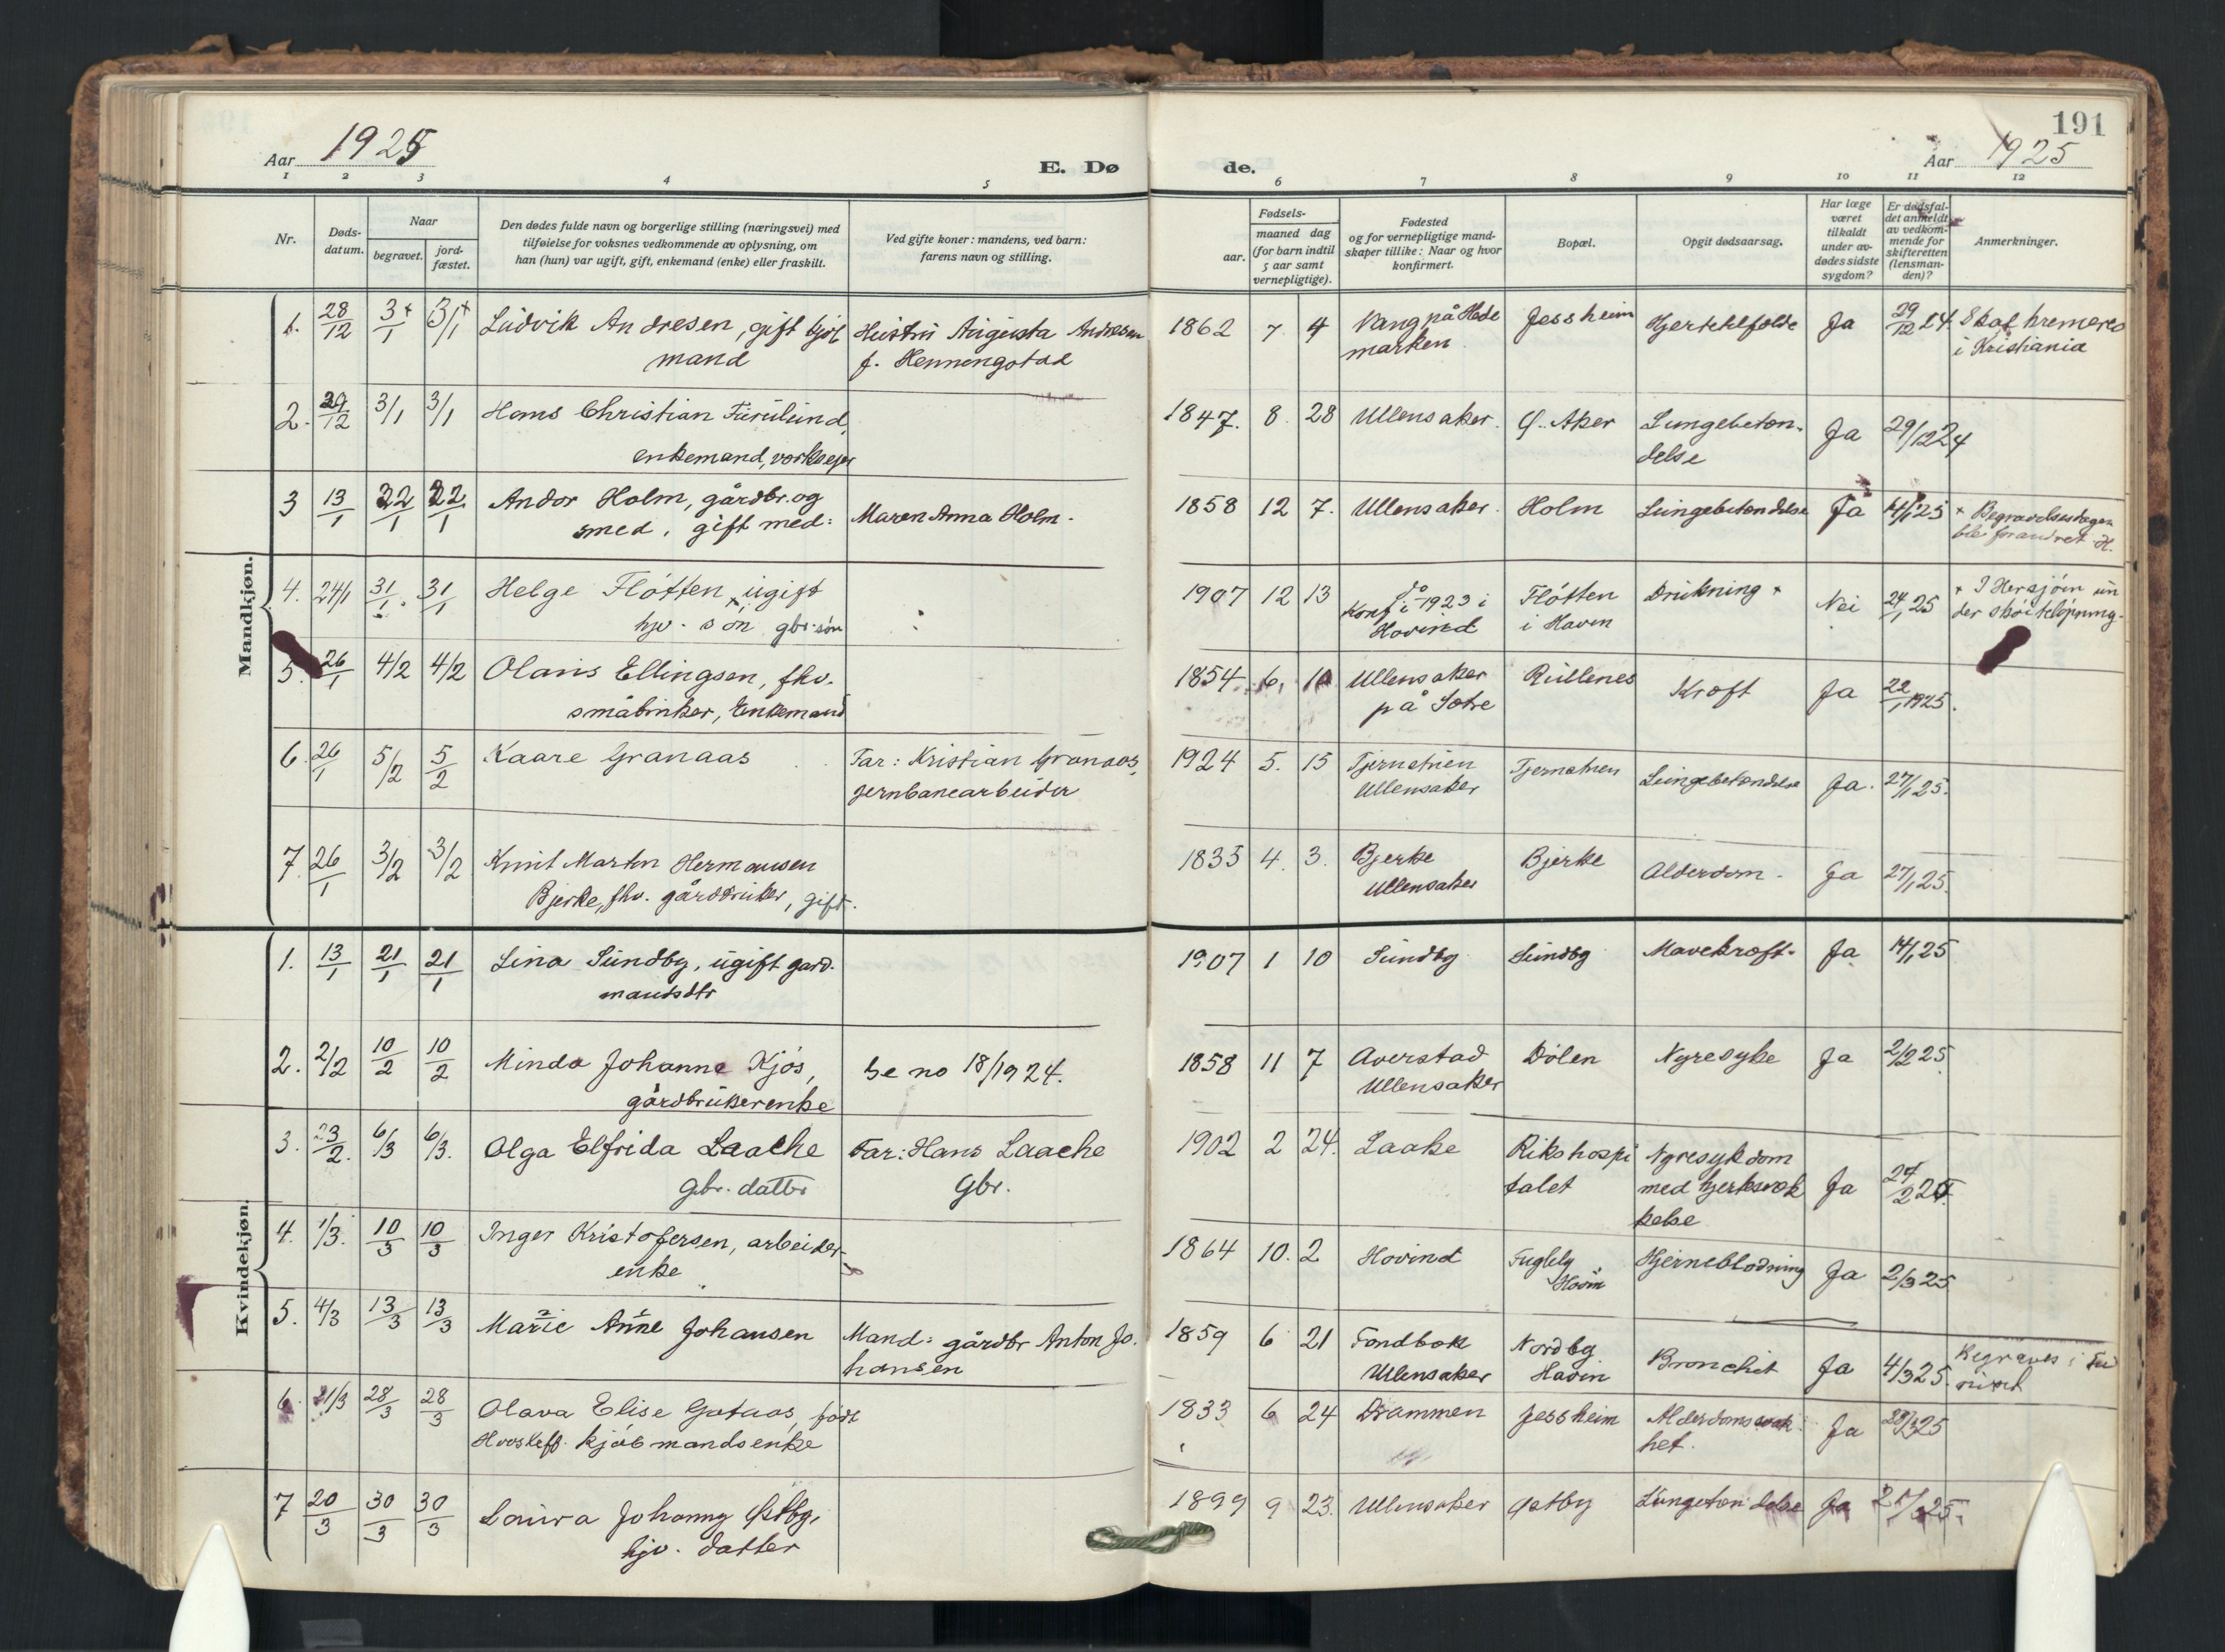 191
Aar 1925
E. Dø
de.
Aar 1925
1 2 3 4 5 6 7 8 9 10 11 12
Nr.
Døds-
datum.
Naar
begravet.
jord-
fæstet.
Den dødes fulde navn og borgerlige stilling (næringsvei) med
tilføielse for voksnes vedkommende av oplysning, om
han (hun) var ugift, gift, enkemand (enke) eller fraskilt.
Ved gifte koner: mandens, ved barn:
farens navn og stilling.
Fødsels-
aar.
maaned dag
(for barn indtil
5 aar samt
vernepligtige).
Fødested
og for vernepligtige mand-
skaper tillike: Naar og hvor
konfirmert.
Bopæl.
Opgit dødsaarsag.
Har læge
været
tilkaldt
under av-
dødes sidste
sygdom?
Er dødsfal-
det anmeldt
av vedkom-
mende for
skifteretten
(lensman-
den)?
Anmerkninger.
Mandkjøn.
1. 28/12 3/1 3/1 Ludvik Andresen, gift kjøb Hustru Augusta Andresen 1862 7 4 Vang på Hede Jessheim Hjerteklfeide Ja 29/12 24. Skal kremeres
mand f. Henningstad marken i Kristiania
2. 29/12 3/1 3/1 Hans Christian Furulund, 1847. 8 28 Ullensaker. Ø. Aker Lungebetæn- Ja 29/12 24
enkemand, verkseier delse
3 13/1 22/1 22/1 Andor Holm, gårdbr. og 1858 12 7. Ullensaker. Holm Lungebetændelse Ja 14/1 25 + Begravelsesdagen
smed, gift med: Maren Anna Holm. ble forandret. H.
4. 24/1 31/1 31/1 Helge Fløtten, ugift 1907 12 13 do Fløtten Drukning + Nei 24/1 25 + I Hersjøen un
hjv. søn gbr. søn Konf. i 1923 i i Hovin der skøiteløpning.
Hovind
5. 26/1 4/2 4/2 Olaus Ellingsen, fhv. 1854 6. 10 Ullensaker Rullenes Kræft Ja 22/1 1925.
småbruker, Enkemand på Sotre
6. 26/1 5/2 5/2 Kaare Granaas Far: Kristian Granaas, 1924 5. 15 Tjernstuen Tjernstuen Lungebetændelse Ja. 27/1 25.
jernbanearbeider Ullensaker
7. 26/1 3/2 3/2 Knut Martin Hermansen 1835 4. 3. Bjerke Bjerke Alderdom. Ja 27/1 25.
Bjerke, fhv. gårdbruker, gift. Ullensaker
Kvindekjøn.
1. 13/1 21/1 21/1 Lina Sundby, ugift gard- 1907 1 10 Sundby Sundby Mavekræft. Ja 14/1 25
mandsdtr
2. 2/2 10/2 10/2 Minda Johanne Kjøs, Se no 18/1924. 1858 11 7 Averstad Dølen Nyresyke Ja 2/2 25
gårdbrukerenke Ullensaker
3. 23/2. 6/3 6/3. Olga Elfrida Laache Far: Hans Laache 1902 2 24. Laake Rikshospi Nyresykdom Ja 24/2 25.
gbr. datter Gbr. talet med hjertesvek
kelse
4. 1/3. 10/3 10/3 Inger Kristofersen, arbeider- 1864 10. 2 Hovind Fuglely Hjerneblødning Ja 2/3 25
enke Hovin
5. 4/3 13/3 13/3 Marie Anne Johansen Mand: gårdbr Anton Jo- 1859 6 21 Fondbak Nordby Bronchit Ja 4/3 25. Begraves i Fu
hansen Ullensaker Hovin ruset
6. 21/3 28/3 28/3 Olava Elise Gotaas, født 1833 6 24 Drammen Jessheim Alderdomssvak- Ja 25
kjøbmandsenke het.
7 20/3 30/3 30/3 Laura Johanny Østby, 1899 9 23. Ullensaker Østby Lungetændelse Ja 25.
hjv. datter